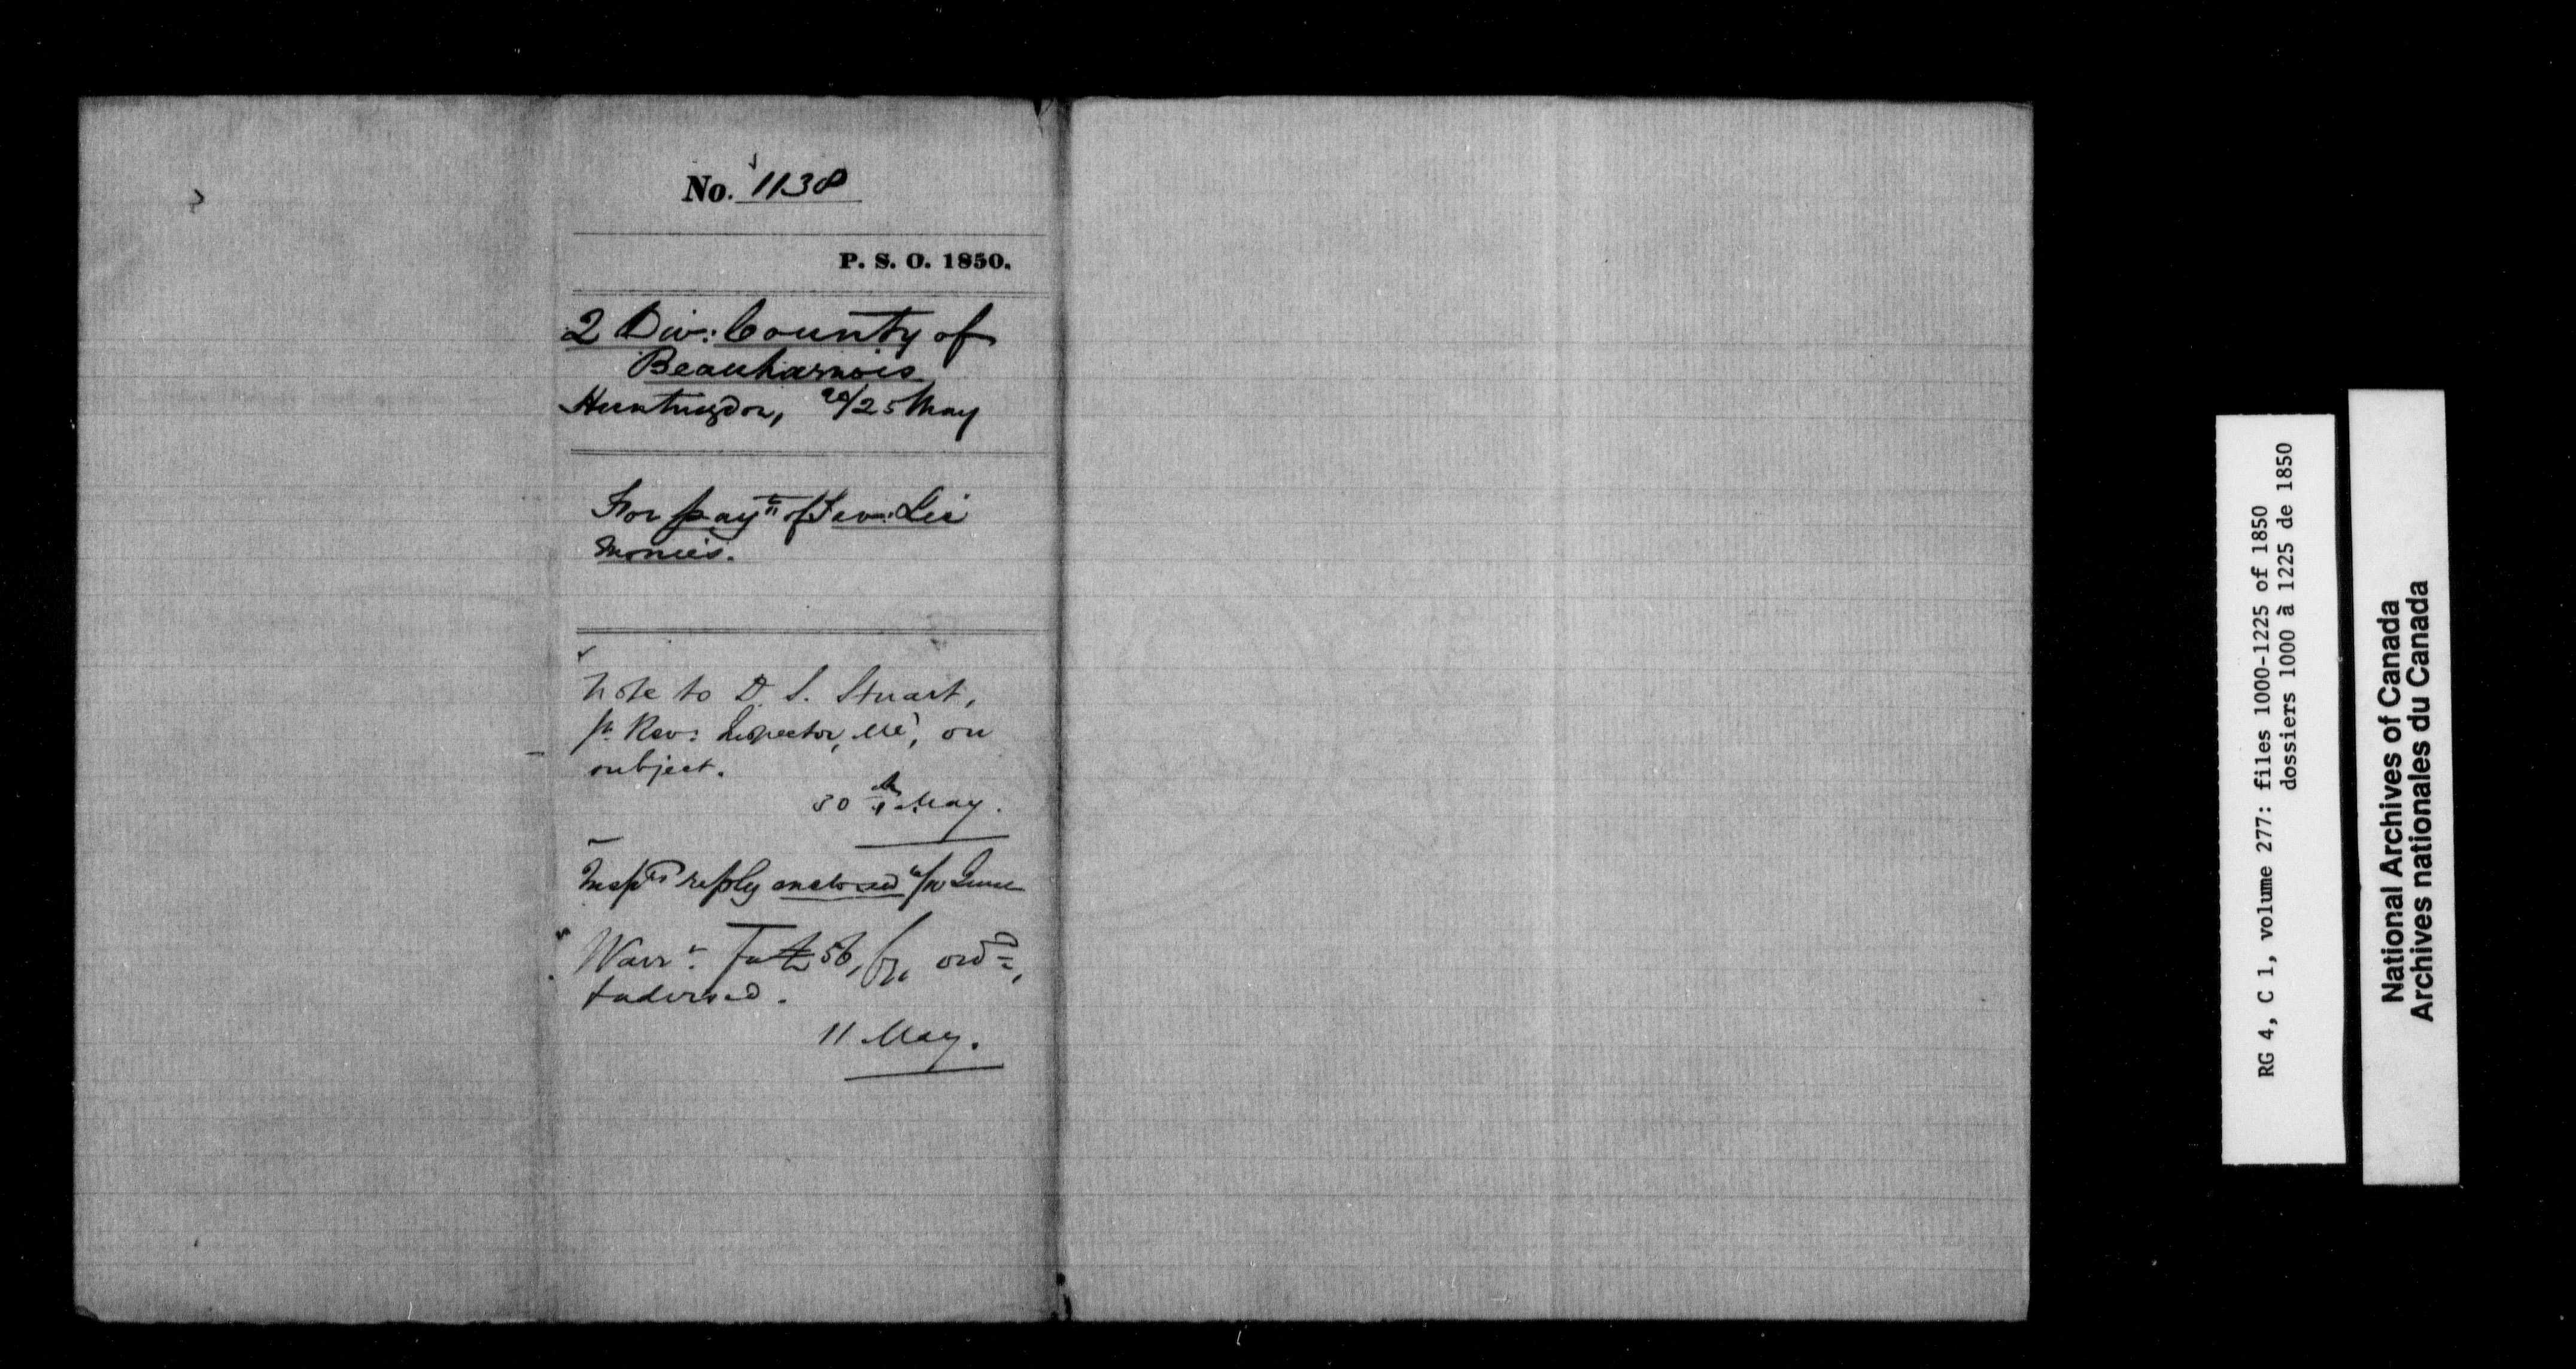 No. 1138
P. S. O. 1850.
2 Div: County of
Beauharnois
Huntingdon, 25 May
For paymt of Tav: Lic
monies.
Note to D. S. Stuart,
Rev: Inspector, on
subject.
30th May.
Inspr's reply enclosed June
Warrt 56, ord
11 May.
RG 4, C 1, volume 277: files 1000-1225 of 1850
dossiers 1000 à 1225 de 1850
National Archives of Canada
Archives nationales du Canada